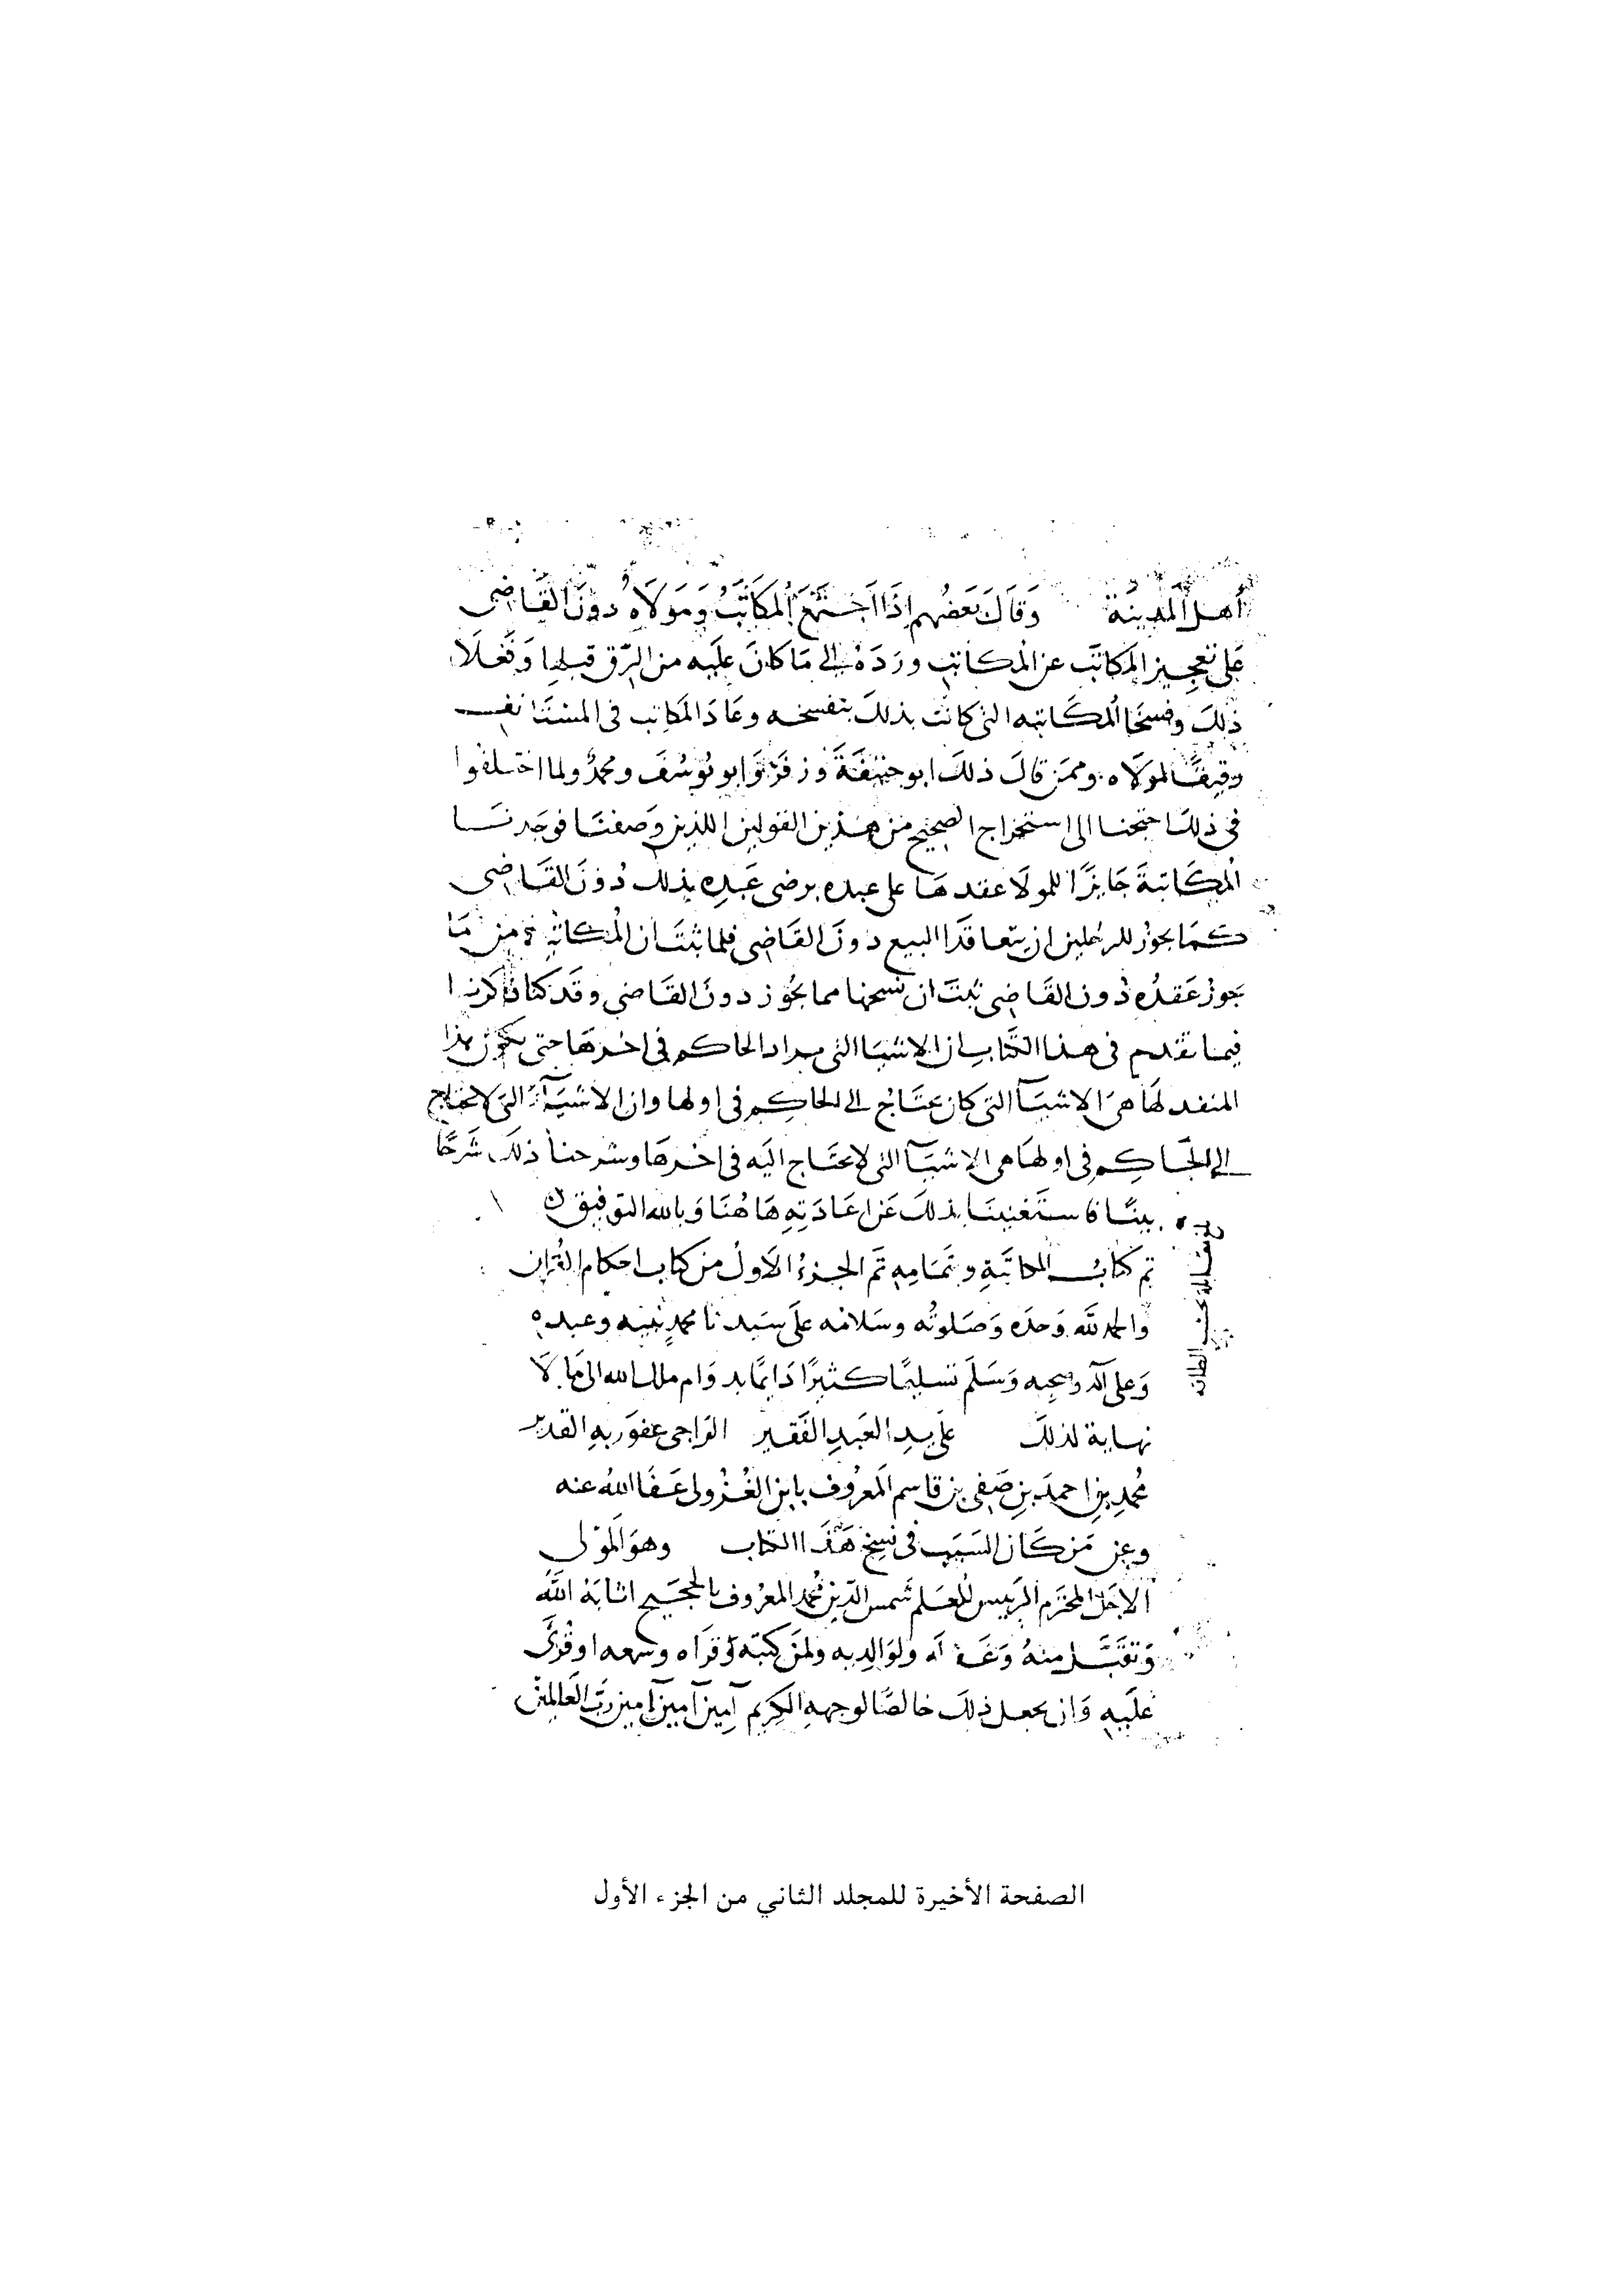 أهل المدينة وَقَالَ بَعضُهم إذَا اجتَمَعَ المكَاتَبُ وَمَولَاهُ دُونَ القَاضى
عَلى تعجيز المكاتَب عن المكاتبه وردَهُ إلى مَا كانَ عليه من الرّق قبلها وَفَعَلَا
ذلكَ وفسخَا المُكَاتبه التى كانت بذلكَ بتفسخه وعَادَ المكاتب فى المستَانف
رقيقًا لمولَاه وممن قالَ ذلكَ ابو حنيفَةَ وزفَرُ وَابو يُوسُفَ ومحمدٌ ولما اختلفوا
فى ذلكَ احتجنا الى استخراج الصحيح من هذين القولين اللذين وَصفنَا فوجَدنَا
المكَاتبةَ جَايزًا للمولَا عقدهَا على عبده برضى عَبدِه بذلك دُونَ القَاضى
كمَا يجوز للرجلين ان يتعاقدَا البيع دونَ القَاضى فلما ثبتَ ان المُكاتبه من مَا
يجوز عَقدُه دُون القَاضى ثبتَ ان فسخها مما يجُوز دونَ القَاضى وقَد كنا ذكرنا
فيما تقدم فى هذا الكتَاب ان الاشيَا التى يراد الحاكم فى اخرهَا حتى يكون هذا
المنفد لهَا هىَ الاشيَآ التى كان يحتَاج الى الحاكِم فى اولها وان الاشيَآءَ التى لا يحتاج
إلى الحَاكِم فِى اولهَا هى الاشيَآ التى لا يحتَاج اليَه فى اخرهَا وشرحنا ذلكَ شَرحًا
بينًا فاستَغنينَا بذلكَ عَن اعَادَتِهِ هَاهُنَا وَبالله التوفيق
تم كتابُ المكاتَبَةِ وبتمَامِهِ تَم الجزءُ الاَولُ من كتاب احكام القُران
والحمد لله وَحدَه وَصَلوتُه وسَلامه علَى سَيدنا محمدٍ نبيه وعبده
وَعلى آله وصحبِه وَسَلَم تسليمًا كثيرًا دَايمًا بدوَام ملك الله الى مَا لَا
نهاية لذلكَ على يدِ العَبدِ الفَقير الرَاجى عفوَ ربهِ القدير
مُحمدِ بنِ احمدَ بنِ صَفى بن قاسم المَعرُوف بابن الغُزُولى عَفَا اللهُ عنه
وعن مَن كَان السَبَب فى نسخ هَذَا الكتاب وهوَ المَولى
الاجَل المحترم الرَييس المعلم شَمس الدّين محمد المعرُوف بالحجيج اثابَهُ اللَّهُ
وَتقَبَّل منهُ وَغَفر له ولوَالدِيه ولمَن كتبَه وَقرَاه وسمعه او قُرىَ
علَيهِ وَان يجعل ذلكَ خالصًا لوجههِ الكَرِيم آمِين آمين آمين ربَّ العَالمين
الصفحة الأخيرة للمجلد الثاني من الجزء الأول